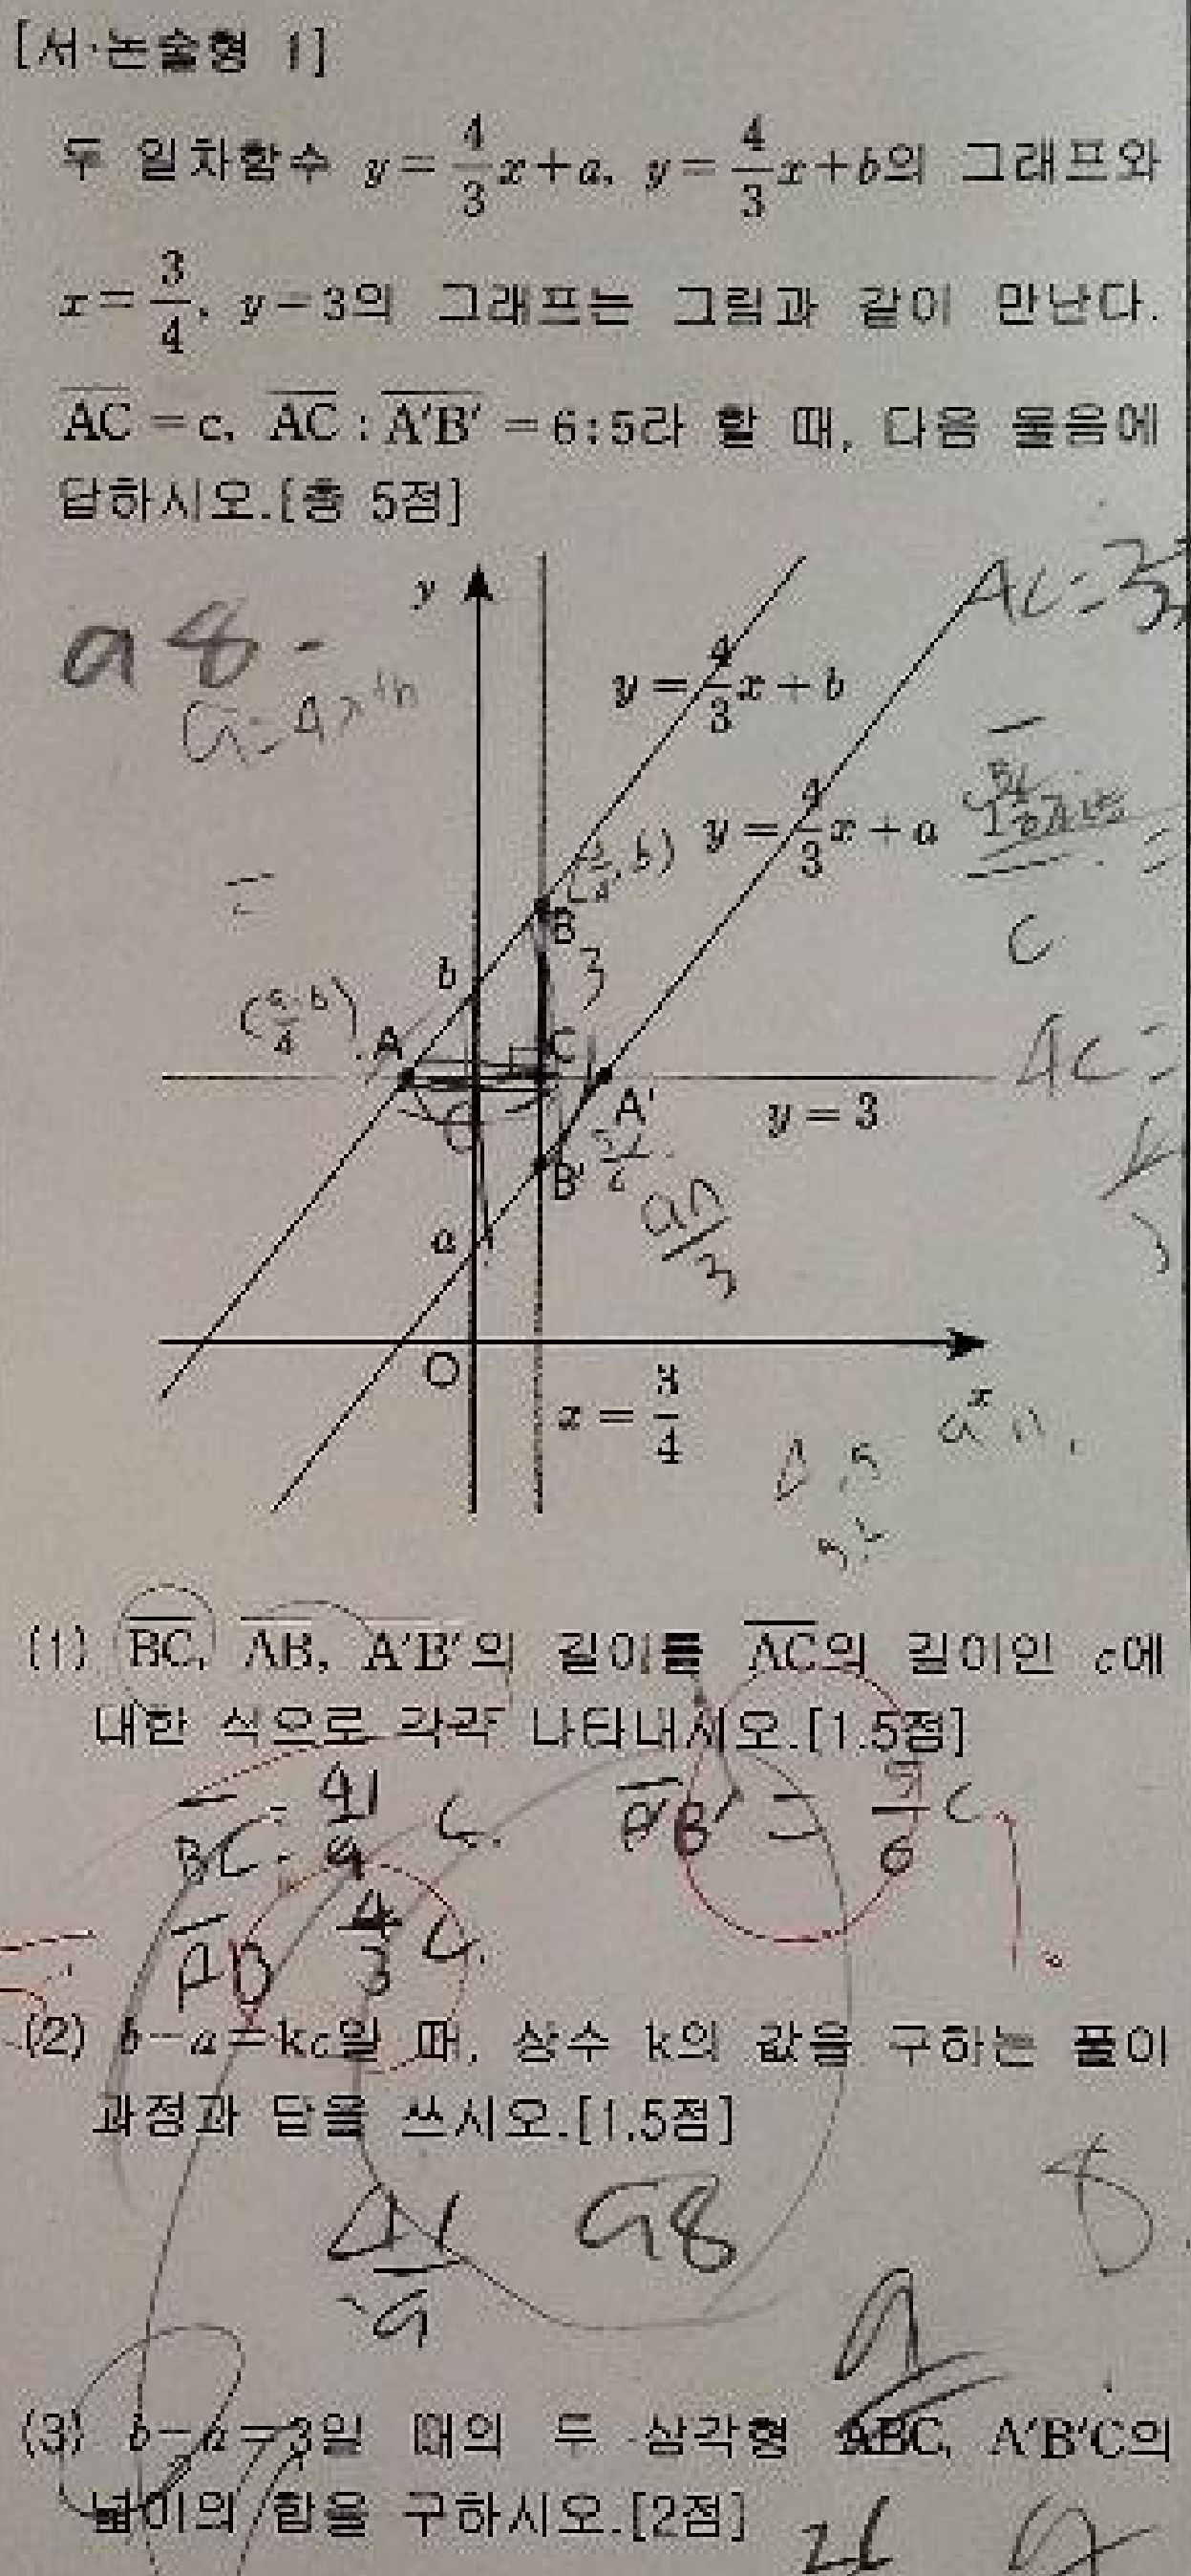 [서·논술형 1]
두 일차함수 y=4/3x+a, y=4/3x+b의 그래프와
x=3/4, y=3의 그래프는 그림과 같이 만난다.
AC=c, AC:A'B'=6:5라 할 때, 다음 물음에
답하시오.[총 5점]
y
a 8 -
AC=
y=4/3x+b
y=4/3x+a
(3/4, b)
B
3
b
c
A
C
AC=
A'
y=3
B'
a
O
x=3/4
x
(1) BC, AB, A'B'의 길이를 AC의 길이인 c에
대한 식으로 각각 나타내시오.[1.5점]
BC = 41/9 c. A'B' = 5/6 c
AB 4/3 c.
(2) b-a=kc일 때, 상수 k의 값을 구하는 풀이
과정과 답을 쓰시오.[1.5점]
41/9 98
8
9
(3) b-a=3일 때의 두 삼각형 ABC, A'B'C의
넓이의 합을 구하시오.[2점]